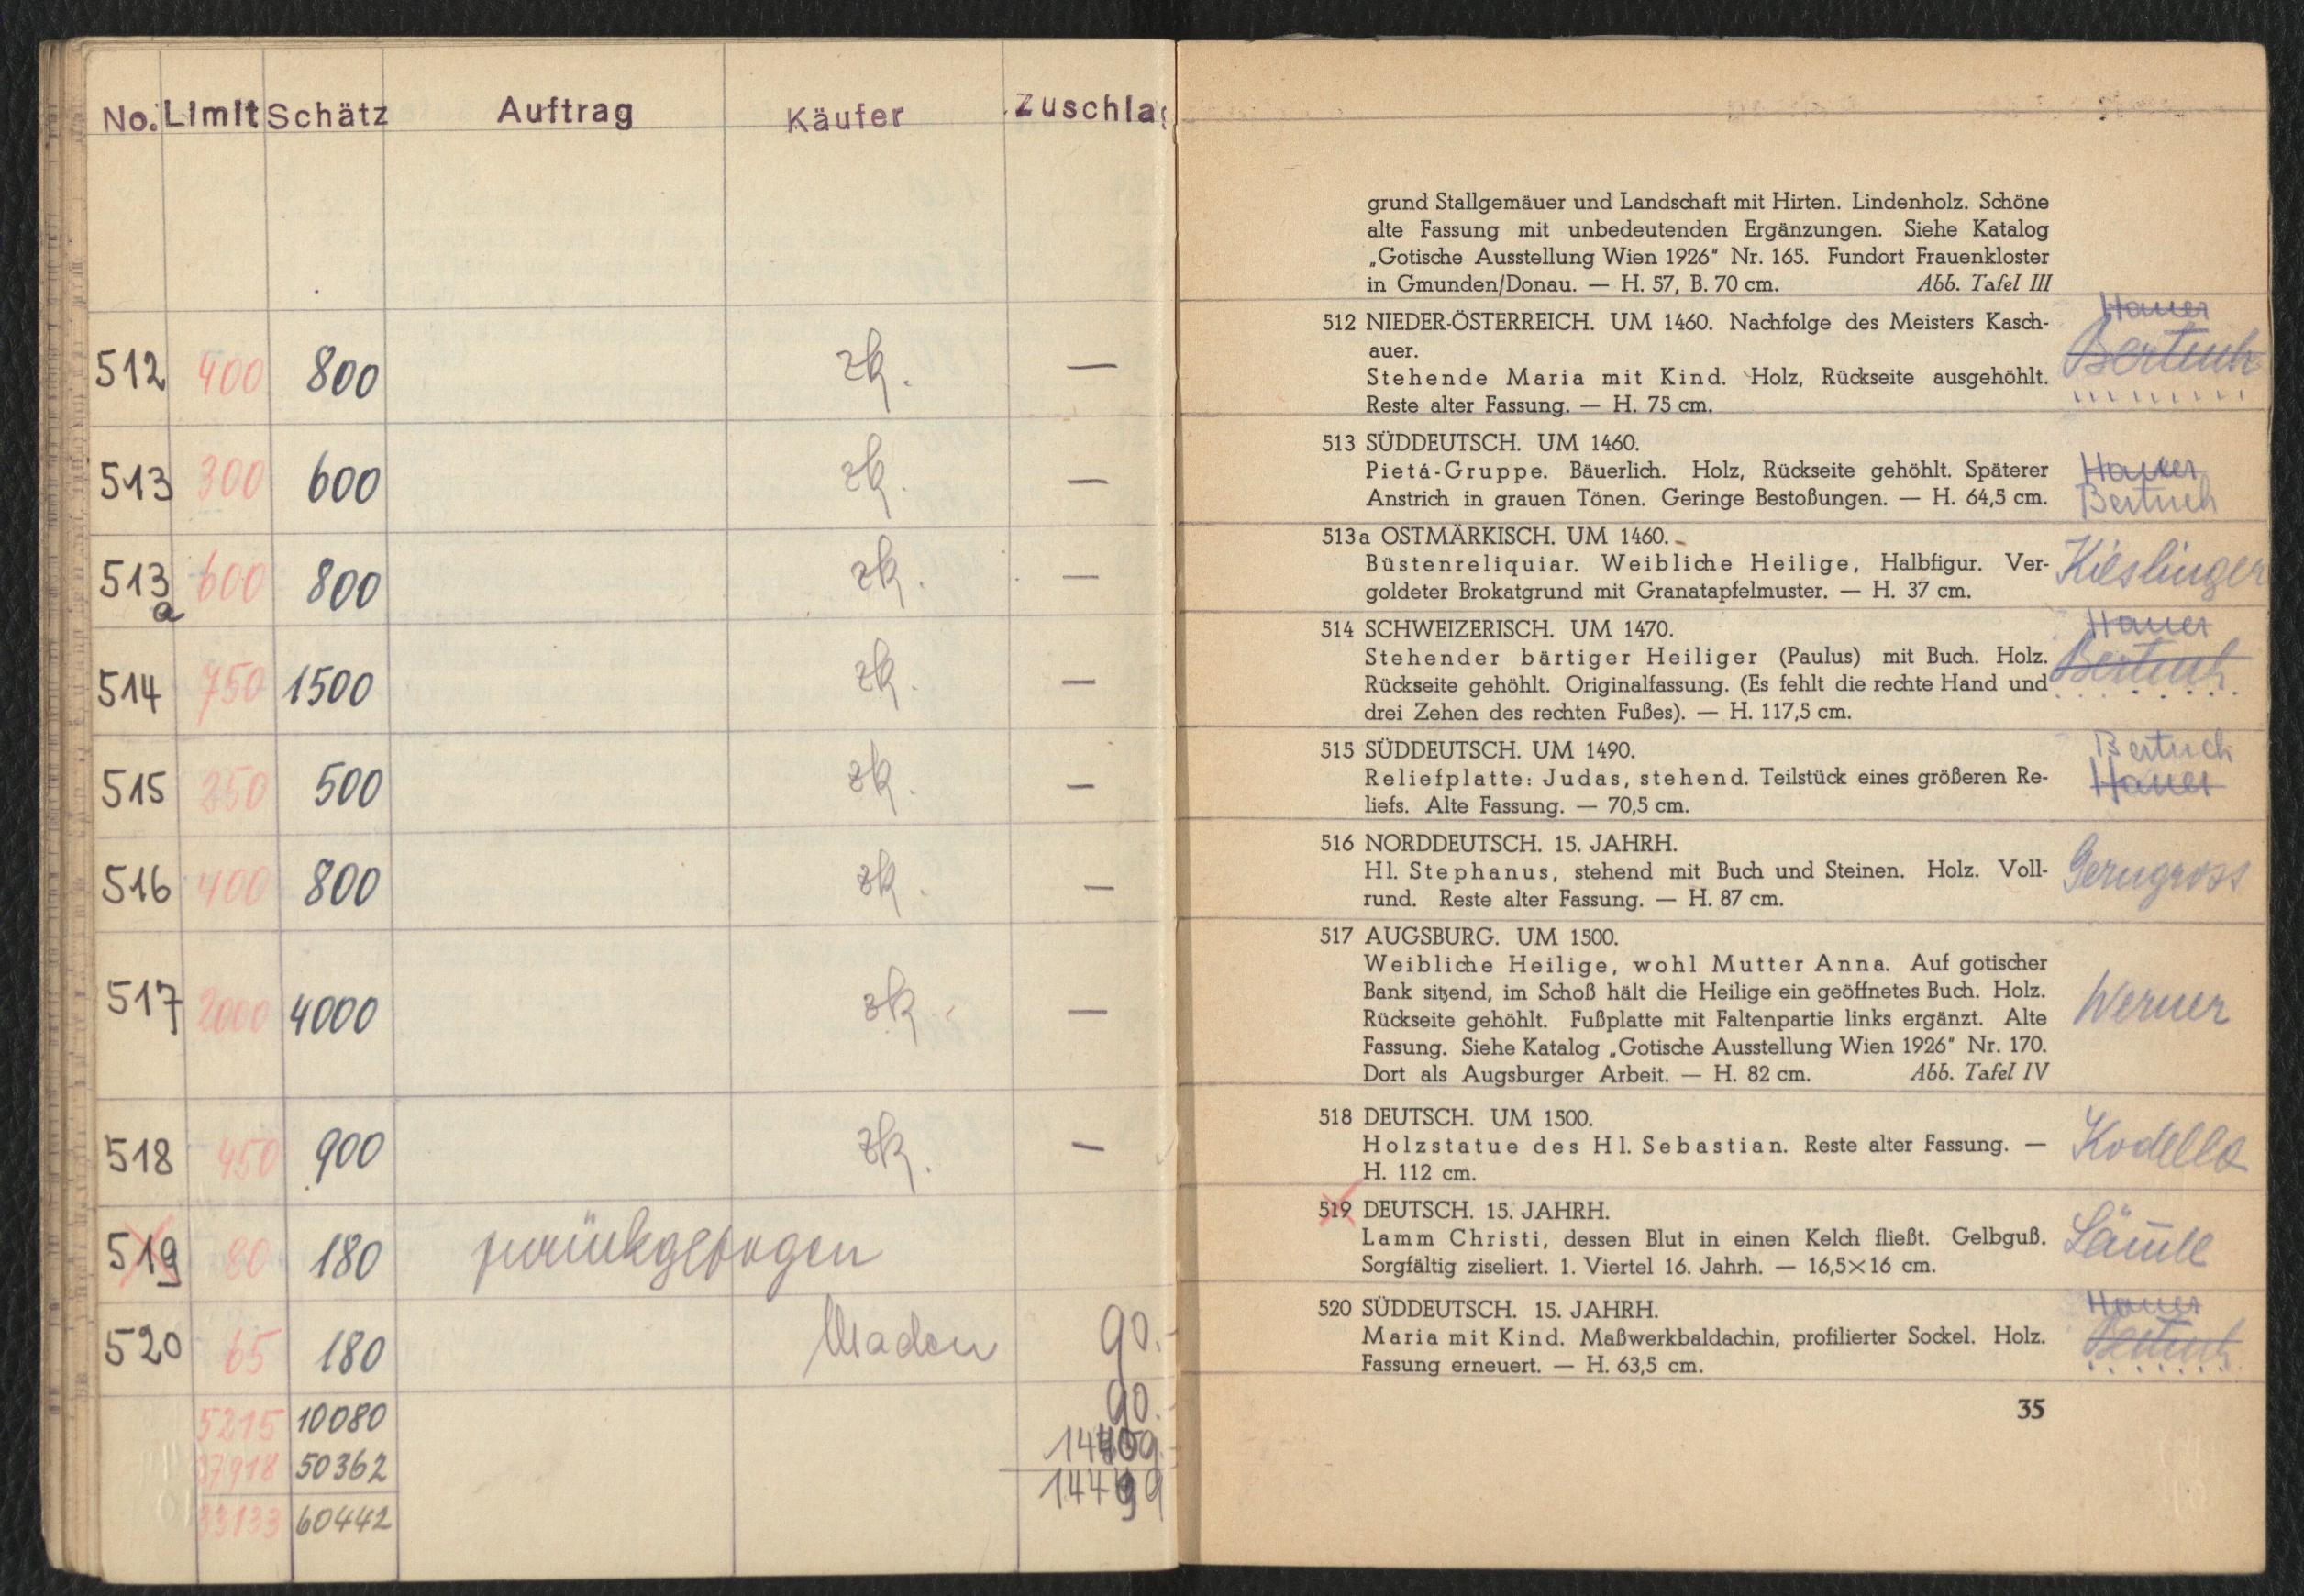 No. Limit Schätz Auftrag Käufer Zuschlag
512 400 800 zk. —
513 300 600 zk. —
513a 600 800 zk. —
514 750 1500 zk. —
515 250 500 zk. —
516 400 800 zk. —
517 2000 4000 zk. —
518 450 900 zk. —
519 80 180 zurückgezogen
520 65 180 90.-
5215 10080 90.-
50362
33133 60442
grund Stallgemäuer und Landschaft mit Hirten. Lindenholz. Schöne
alte Fassung mit unbedeutenden Ergänzungen. Siehe Katalog
„Gotische Ausstellung Wien 1926" Nr. 165. Fundort Frauenkloster
in Gmunden/Donau. — H. 57, B. 70 cm. Abb. Tafel III
Hauer
512 NIEDER-ÖSTERREICH. UM 1460. Nachfolge des Meisters Kasch-
auer. Bertuch
Stehende Maria mit Kind. Holz, Rückseite ausgehöhlt.
Reste alter Fassung. — H. 75 cm.
513 SÜDDEUTSCH. UM 1460.
Pietá-Gruppe. Bäuerlich. Holz, Rückseite gehöhlt. Späterer Hauer
Anstrich in grauen Tönen. Geringe Bestoßungen. — H. 64,5 cm. Bertuch
513a OSTMÄRKISCH. UM 1460.
Büstenreliquiar. Weibliche Heilige, Halbfigur. Ver- Kieslinger
goldeter Brokatgrund mit Granatapfelmuster. — H. 37 cm.
514 SCHWEIZERISCH. UM 1470. Hauer
Stehender bärtiger Heiliger (Paulus) mit Buch. Holz. Bertuch
Rückseite gehöhlt. Originalfassung. (Es fehlt die rechte Hand und
drei Zehen des rechten Fußes). — H. 117,5 cm.
515 SÜDDEUTSCH. UM 1490. Bertuch
Reliefplatte: Judas, stehend. Teilstück eines größeren Re- Hauer
liefs. Alte Fassung. — 70,5 cm.
516 NORDDEUTSCH. 15. JAHRH.
Hl. Stephanus, stehend mit Buch und Steinen. Holz. Voll- Gerngross
rund. Reste alter Fassung. — H. 87 cm.
517 AUGSBURG. UM 1500.
Weibliche Heilige, wohl Mutter Anna. Auf gotischer
Bank sitzend, im Schoß hält die Heilige ein geöffnetes Buch. Holz. Werner
Rückseite gehöhlt. Fußplatte mit Faltenpartie links ergänzt. Alte
Fassung. Siehe Katalog „Gotische Ausstellung Wien 1926" Nr. 170.
Dort als Augsburger Arbeit. — H. 82 cm. Abb. Tafel IV
518 DEUTSCH. UM 1500.
Holzstatue des Hl. Sebastian. Reste alter Fassung. — Kodella
H. 112 cm.
519 DEUTSCH. 15. JAHRH.
Lamm Christi, dessen Blut in einen Kelch fließt. Gelbguß.
Sorgfältig ziseliert. 1. Viertel 16. Jahrh. — 16,5×16 cm.
520 SÜDDEUTSCH. 15. JAHRH. Hauer
Maria mit Kind. Maßwerkbaldachin, profilierter Sockel. Holz. Bertuch
Fassung erneuert. — H. 63,5 cm.
35